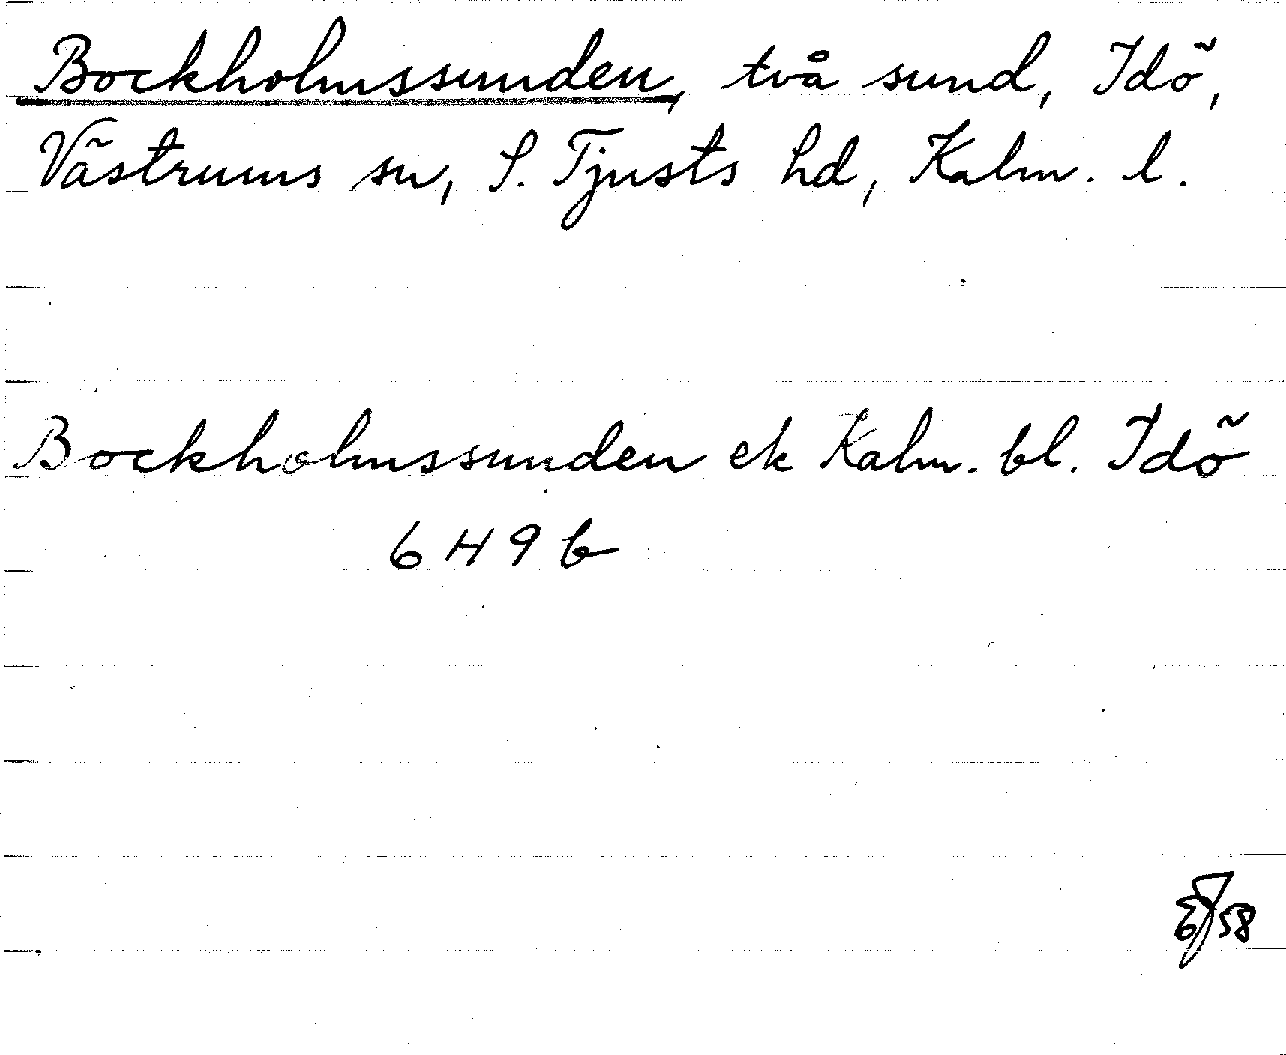 Bockholmssunden, två sund, Idö,
Västrums sn, S. Tjusts hd, Kalm. l.
Bockholmssunden ek Kalm. bl. Idö
6 H 9 b
58